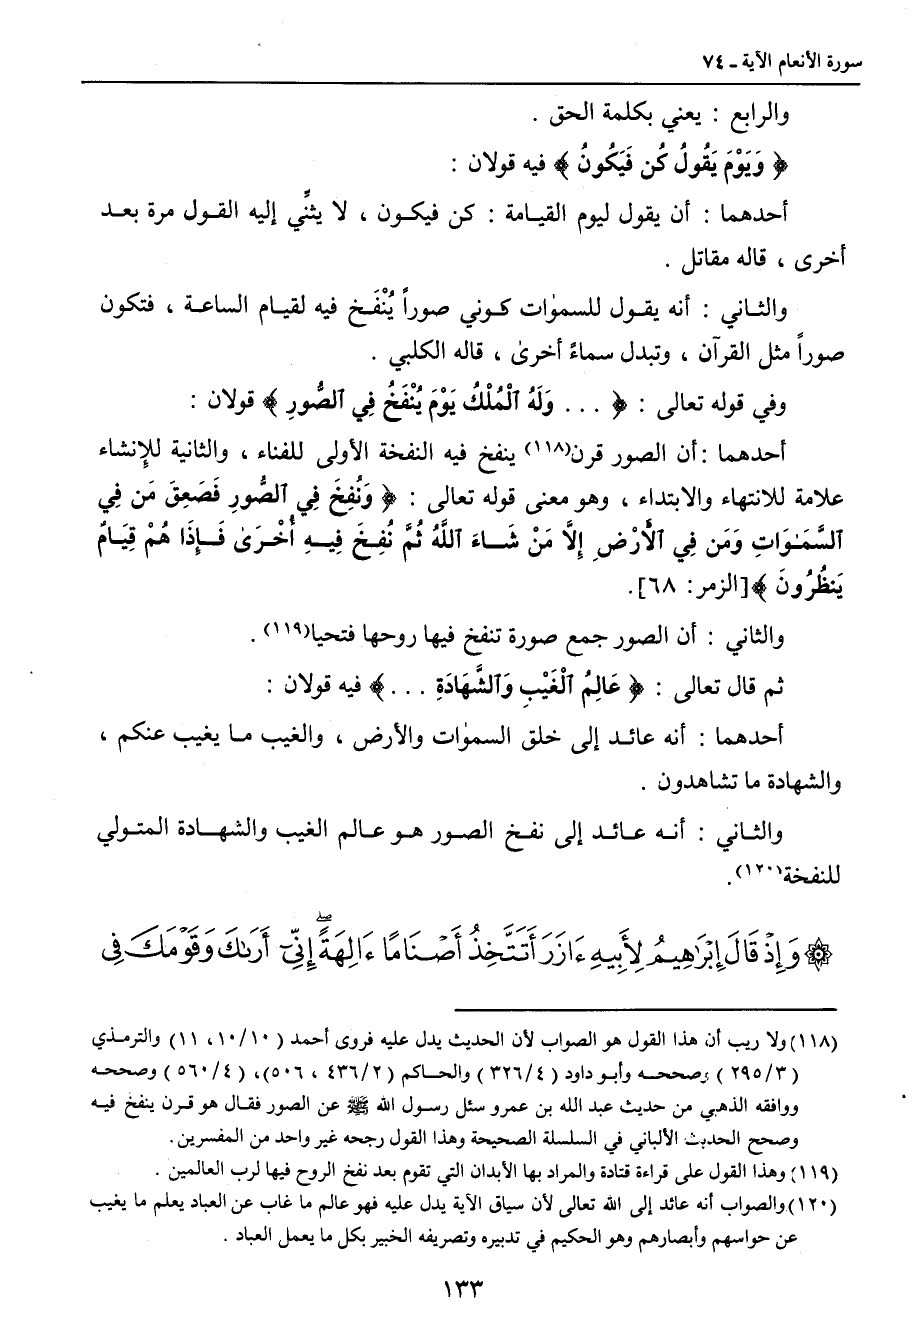 سورة الأنعام الآية ـ ٧٤
والرابع : يعني بكلمة الحق .
﴿ وَيَوْمَ يَقُولُ كُن فَيَكُونُ ﴾ فيه قولان :
أحدهما : أن يقول ليوم القيامة : كن فيكون ، لا يثنِّي إليه القول مرة بعد
أخرى ، قاله مقاتل .
والثاني : أنه يقول للسمٰوات كوني صوراً يُنْفَخ فيه لقيام الساعة ، فتكون
صوراً مثل القرآن ، وتبدل سماءً أخرىٰ ، قاله الكلبي .
وفي قوله تعالى : ﴿ . . . وَلَهُ ٱلْمُلْكُ يَوْمَ يُنْفَخُ فِي ٱلصُّورِ ﴾ قولان :
أحدهما :أن الصور قرن(١١٨) ينفخ فيه النفخة الأولى للفناء ، والثانية للإنشاء
علامة للانتهاء والابتداء ، وهو معنى قوله تعالى : ﴿ وَنُفِخَ فِي ٱلصُّورِ فَصَعِقَ مَن فِي
ٱلسَّمَـٰوَاتِ وَمَن فِي ٱلْأَرْضِ إِلَّا مَنْ شَـاءَ ٱللَّهُ ثُمَّ نُفِـخَ فِيـهِ أُخْـرَىٰ فَـإِذَا هُمْ قِيَامٌ
يَنظُرُونَ ﴾[الزمر: ٦٨].
والثاني : أن الصور جمع صورة تنفخ فيها روحها فتحيا(١١٩) .
ثم قال تعالى : ﴿ عَالِمُ ٱلْغَيْبِ وَٱلشَّهَادَةِ . . .﴾ فيه قولان :
أحدهما : أنه عائد إلى خلق السمٰوات والأرض ، والغيب ما يغيب عنكم ،
والشهادة ما تشاهدون .
والثاني : أنه عائد إلى نفخ الصور هو عالم الغيب والشهادة المتولي
للنفخة(١٢٠).
۞ وَإِذْ قَالَ إِبْرَٰهِيمُ لِأَبِيهِ ءَازَرَ أَتَتَّخِذُ أَصْنَامًا ءَالِهَةً ۖ إِنِّىٓ أَرَىٰكَ وَقَوْمَكَ فِى
(١١٨) ولا ريب أن هذا القول هو الصواب لأن الحديث يدل عليه فروى أحمد ( ١٠/١٠، ١١) والترمذي
( ٢٩٥/٣ ) وصححه وأبو داود ( ٣٢٦/٤ ) والحاكم ( ٤٣٦/٢ ، ٥٠٦)، ( ٥٦٠/٤ ) وصححه
ووافقه الذهبي من حديث عبد الله بن عمرو سئل رسول الله ﷺ عن الصور فقال هو قرن ينفخ فيه
وصحح الحديث الألباني في السلسلة الصحيحة وهذا القول رجحه غير واحد من المفسرين .
(١١٩) وهذا القول على قراءة قتادة والمراد بها الأبدان التي تقوم بعد نفخ الروح فيها لرب العالمين .
(١٢٠) والصواب أنه عائد إلى الله تعالى لأن سياق الآية يدل عليه فهو عالم ما غاب عن العباد يعلم ما يغيب
عن حواسهم وأبصارهم وهو الحكيم في تدبيره وتصريفه الخبير بكل ما يعمل العباد .
١٣٣